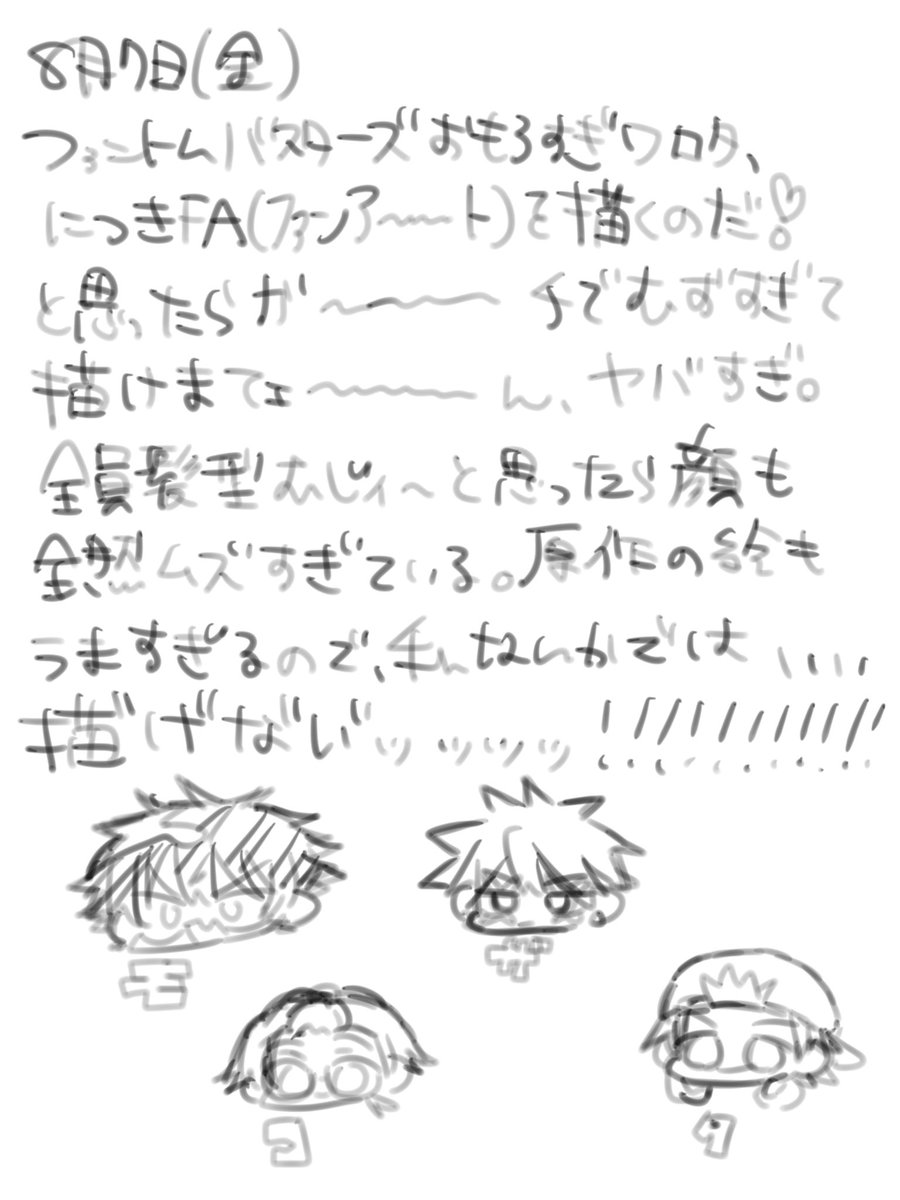 8月7日(金)
ファントムバスターズおもろすぎワロタ、
につきFA(ファンア〜〜ート)を描くのだ!♡
と思ったらガ〜〜〜〜チでむずすぎて
描けまてェ〜〜〜〜ん、ヤバすぎ。
全員髪型むじィ〜と思ったら顔も
全然ムズすぎている。原作の絵も
うますぎるので、私なんかでは、、、、
描゛げ゛な゛い゛ッッッッ!!!!!!!!!!
モ
ザ
コ
タ